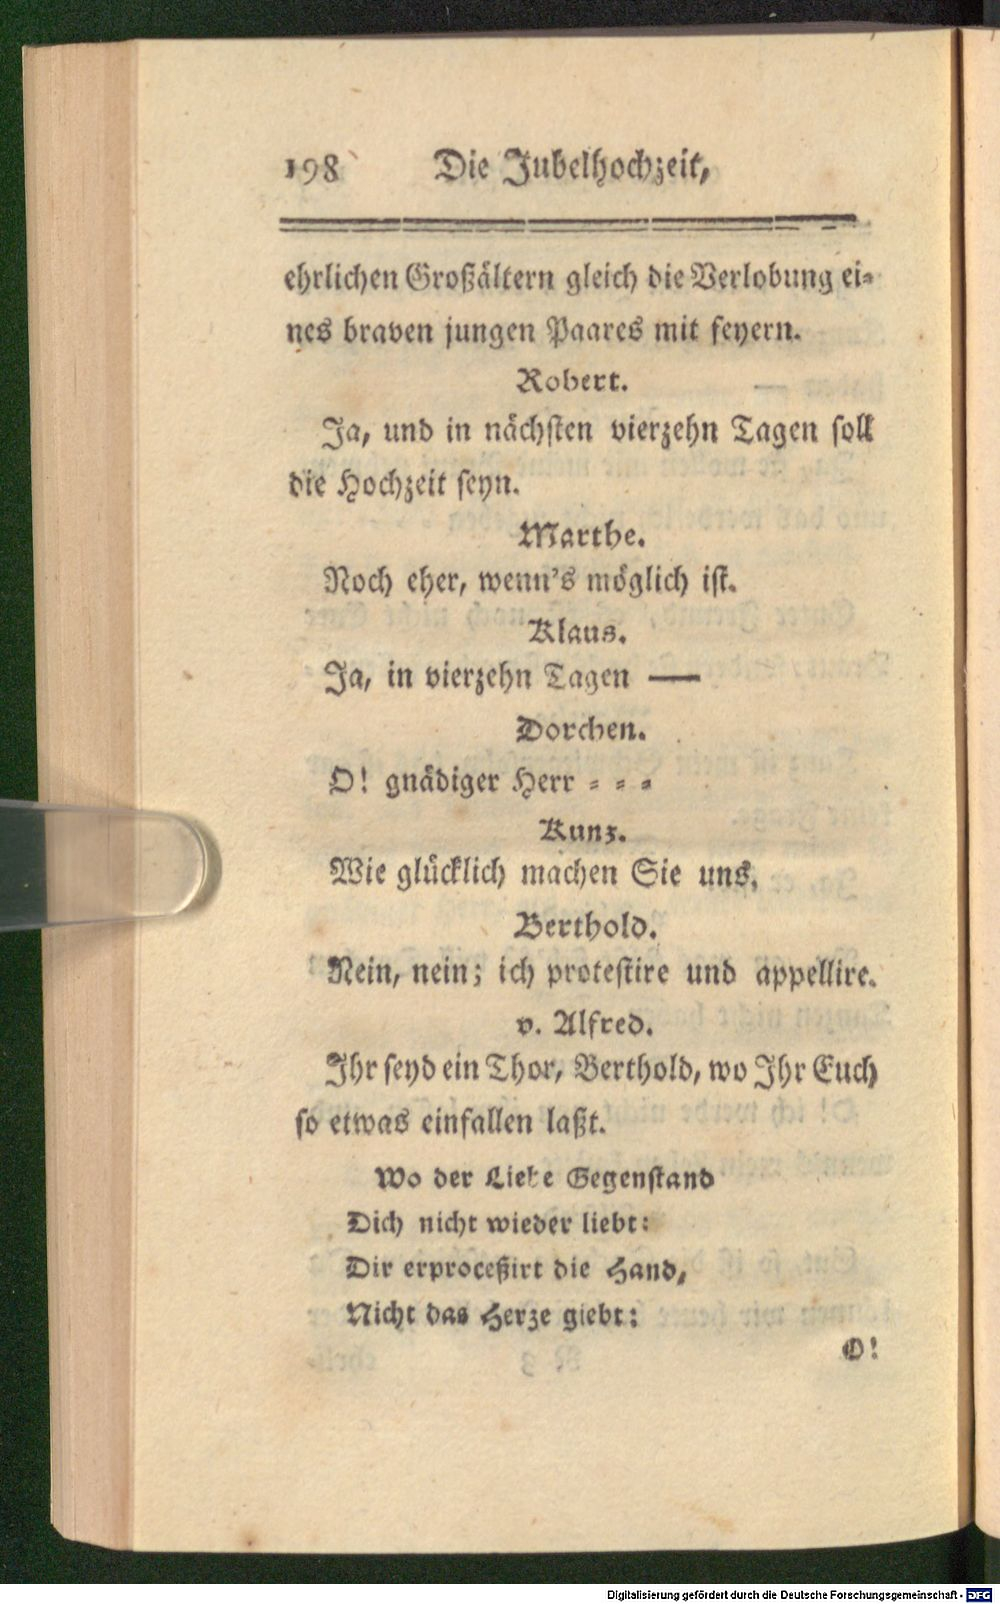 198 Die Jubelhochzeit,
ehrlichen Großältern gleich die Verlobung ei-
nes braven jungen Paares mit feyern.
Robert.
Ja, und in nächsten vierzehn Tagen soll
die Hochzeit seyn.
Marthe.
Noch eher, wenn's möglich ist.
Klaus.
Ja, in vierzehn Tagen —
Dorchen.
O! gnädiger Herr = = =
Kunz.
Wie glücklich machen Sie uns.
Berthold.
Nein, nein; ich protestire und appellire.
v. Alfred.
Ihr seyd ein Thor, Berthold, wo Ihr Euch
so etwas einfallen laßt.
Wo der Liebe Gegenstand
Dich nicht wieder liebt:
Dir erproceßirt die Hand,
Nicht das Herze giebt:
O!
Digitalisierung gefördert durch die Deutsche Forschungsgemeinschaft - DFG